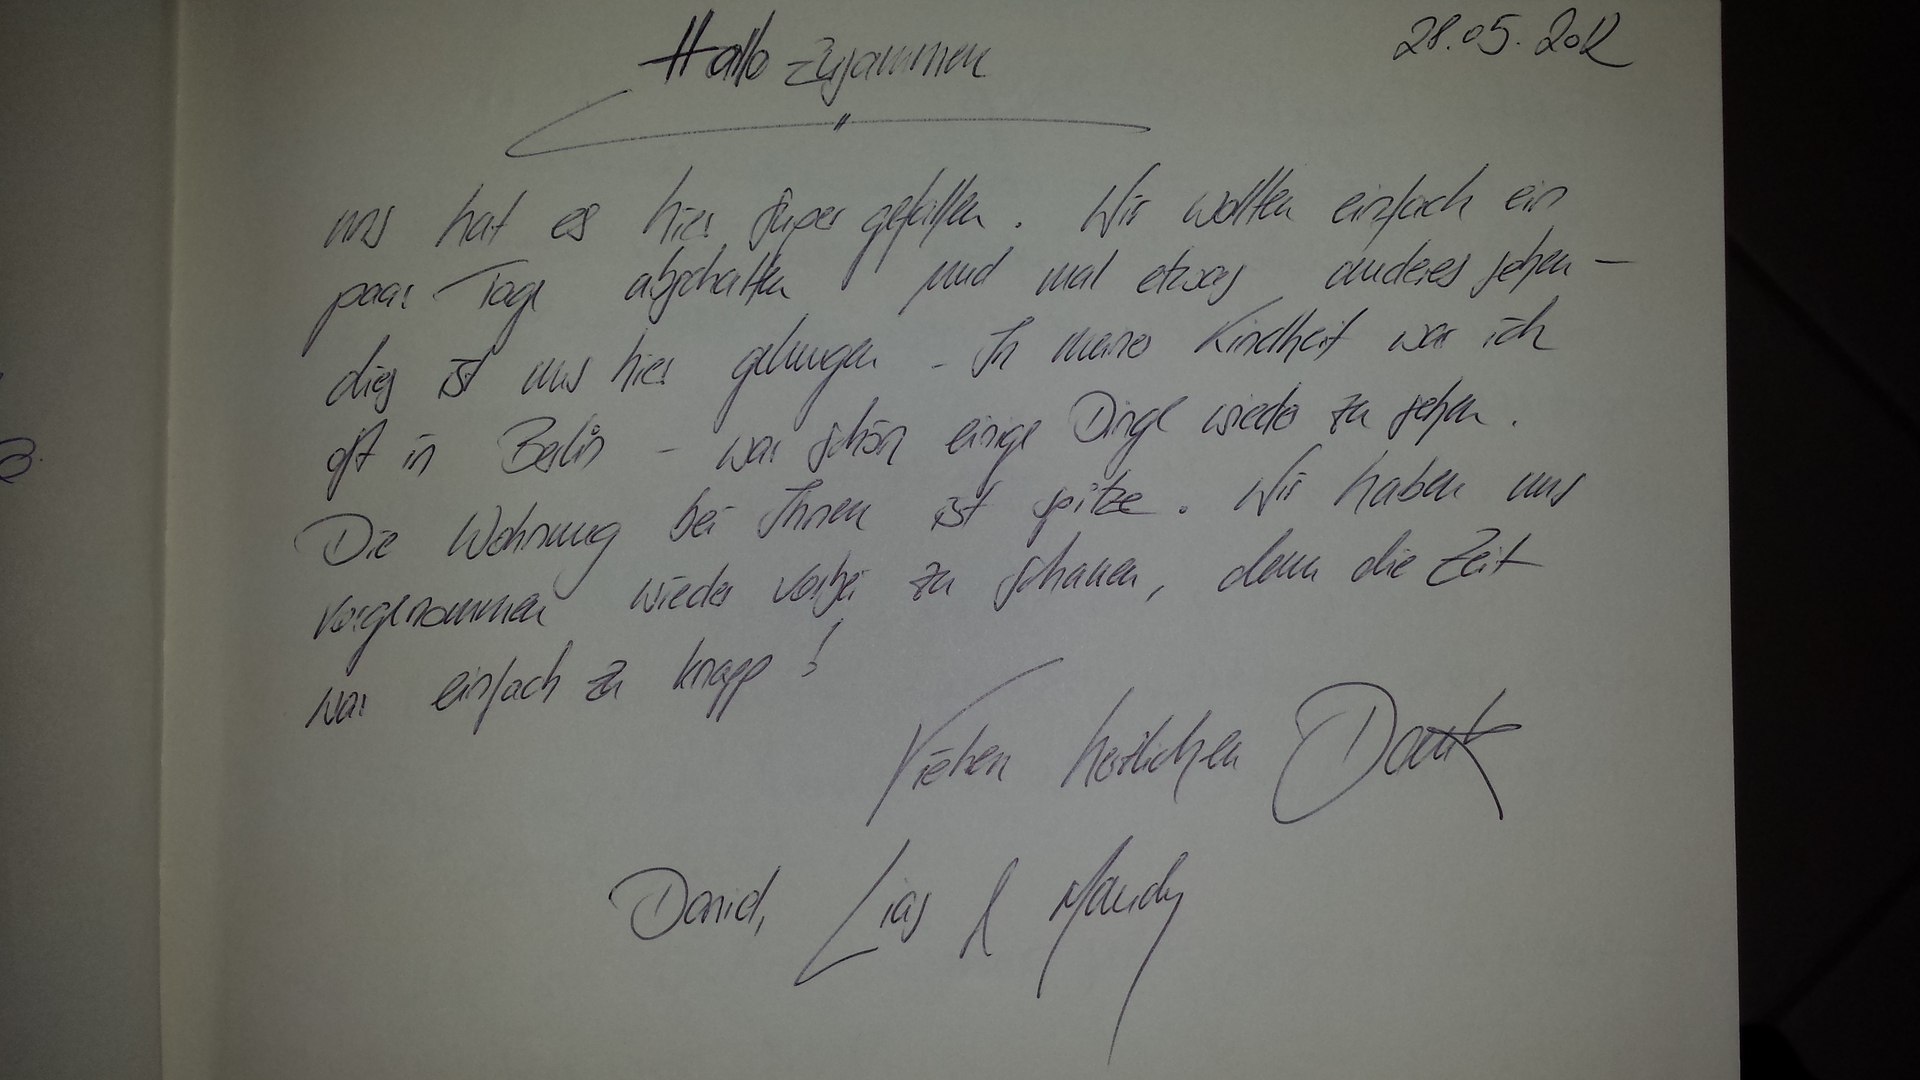 28.05.2012
Hallo zusammen
uns hat es hier super gefallen. Wir wollten einfach ein
paar Tage abschalten und mal etwas anderes sehen –
dies ist uns hier gelungen - In meiner Kindheit war ich
oft in Berlin – war schön einige Dinge wieder zu sehen.
Die Wohnung bei Ihnen ist spitze. Wir haben uns
vorgenommen wieder vorbei zu schauen, denn die Zeit
war einfach zu knapp!
Vielen herzlichen Dank
David, Lias & Mandy